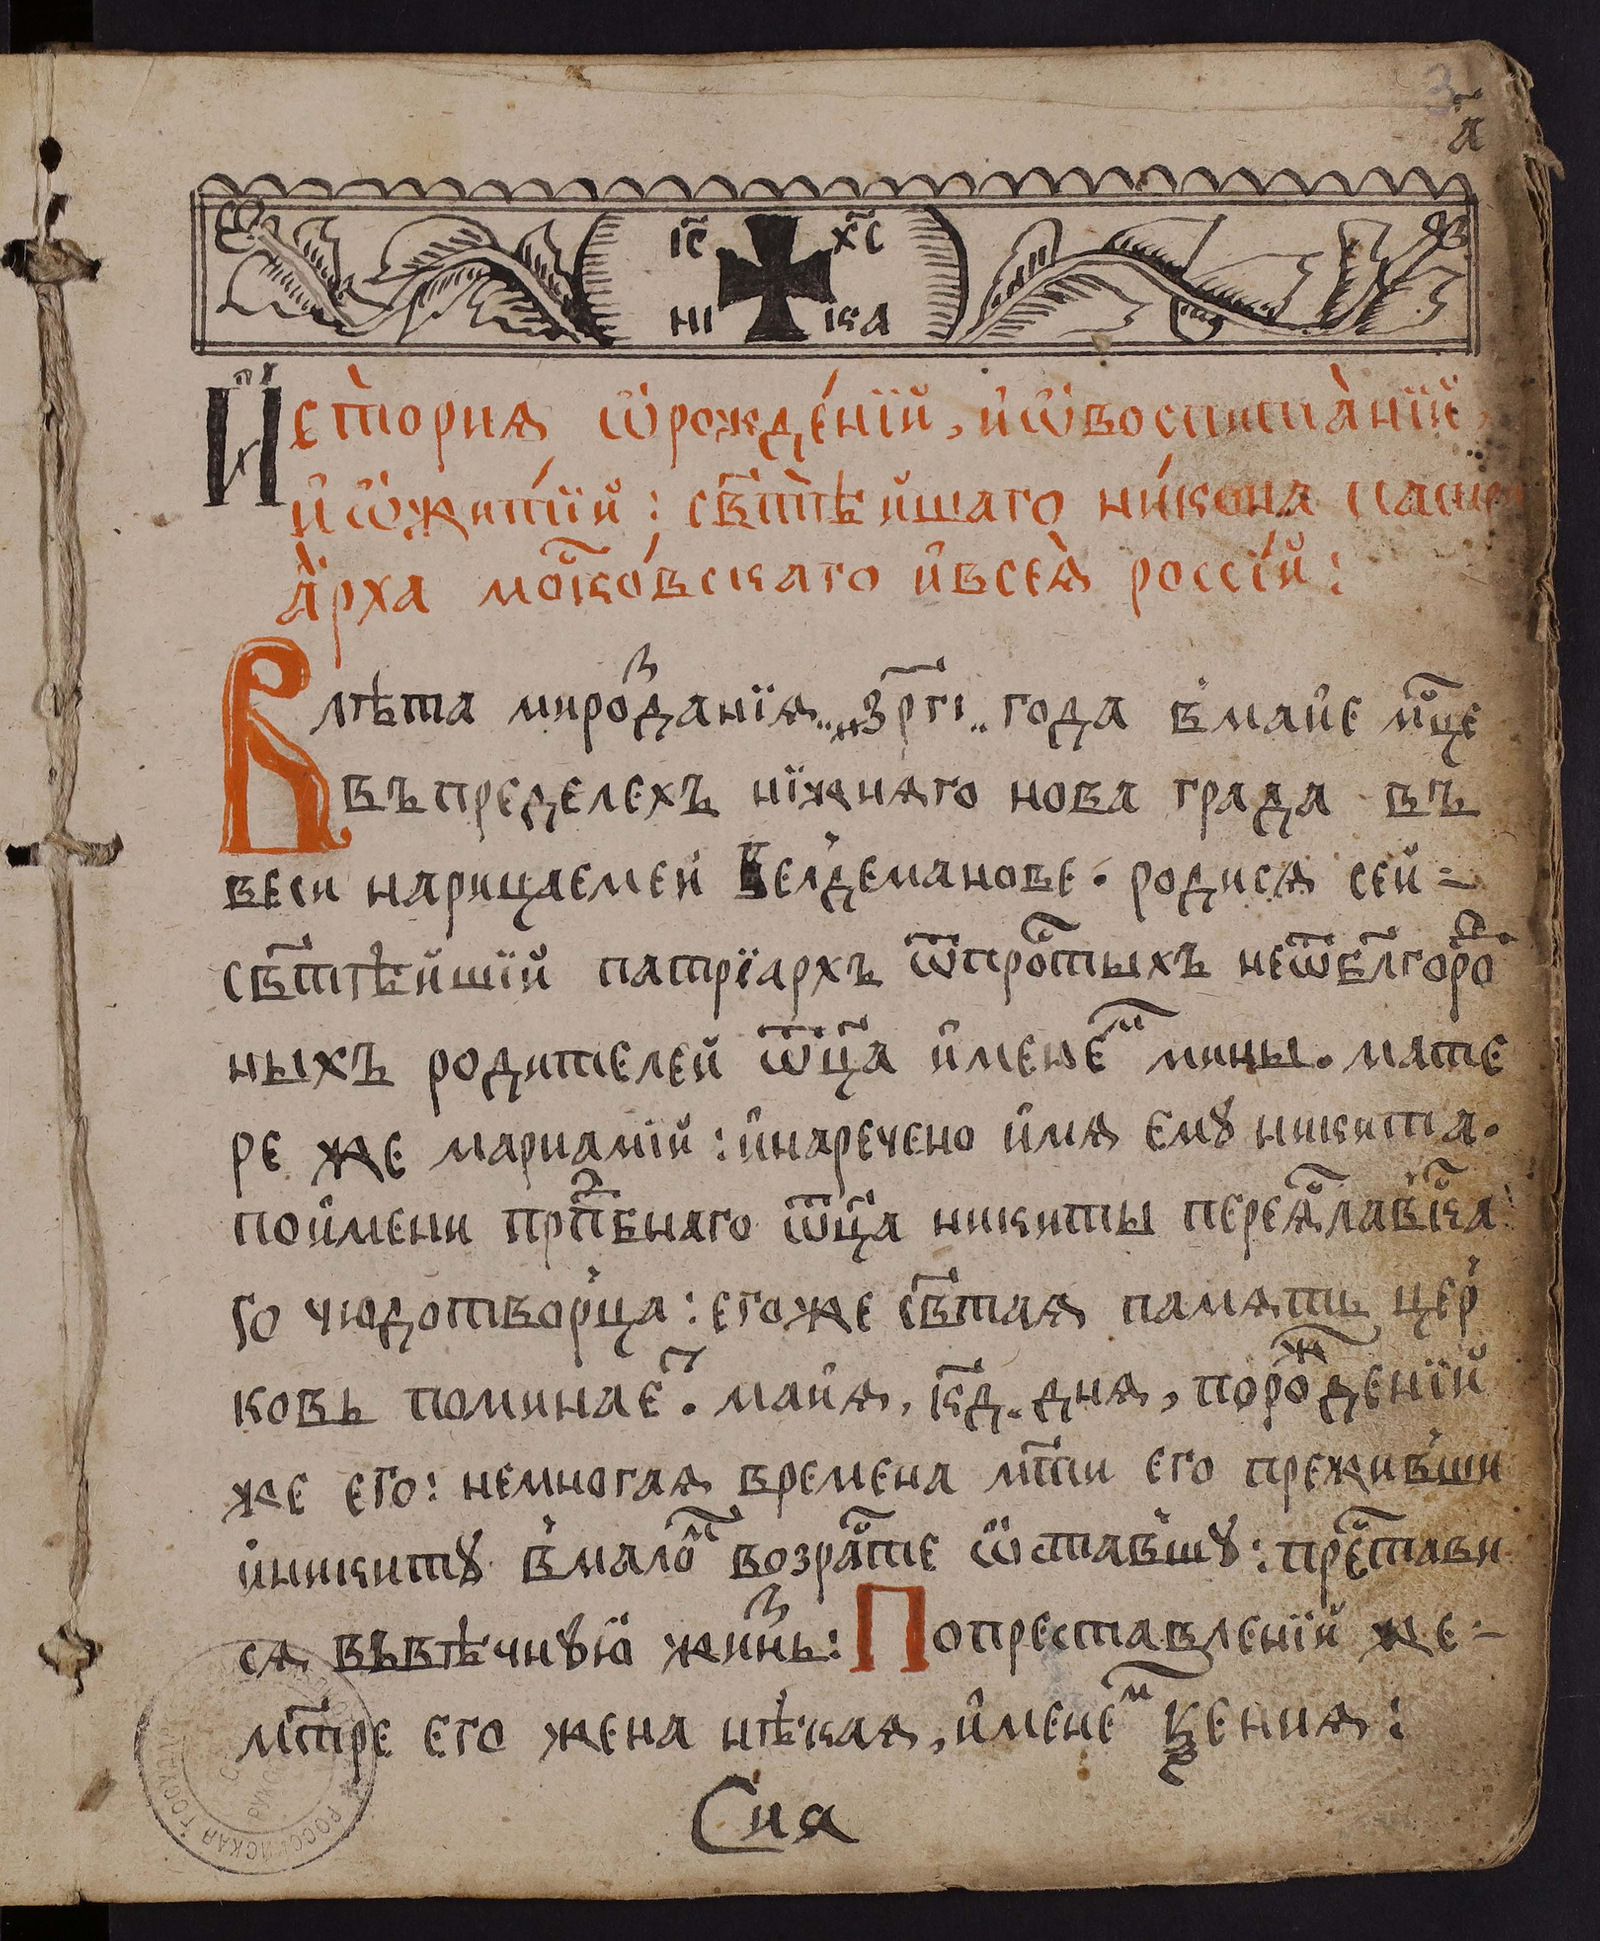 3
а҃
і҃с х҃с
ні ка
И҆сто̀рия ѡ҆рожде́нїй, и҆ѡ҆воспита̀нїй,
и҆ѡ҆жити́їй: свт҃ѣ́йшаго ни́кона патри
а҆̀рха моⷭ҇ко́вскаго и҆всеѧ̀ россі́й:
В лѣта мироⷥданїѧ ҂зрг҃і года в маи҆е мⷭ҇це
въпределехъ нїжнѧго нова града въ
веси нарицаемей Велдеманове. родисѧ сей
свт҃ѣйшїй патрїархъ ѿпроⷭ҇тыхъ неѿблг҃ороⷣ
ныхъ родителей ѿц҃а и҆менеⷨ мины. мате
ре же мариамїй: и҆наречено и҆мѧ емꙋ никита.
пои҆мени прпⷣбнаго ѿц҃а никиты переѧⷭ҇лавⷭ҇ка
го чюдотворца: егоже свт҃аѧ памѧть цер
ковь поминаеⷮ. маиѧ, к҃д. днѧ, пороⷤденїй
же его: немногаѧ времена мт҃и его преживши
и҆никитꙋ в малоⷨ возраⷭ҇те ѡ҆ставшꙋ: преⷭ҇тави
сѧ въвѣчнꙋю жиⷥнь: Попреставленїй же
мт҃ре его жена нѣкаѧ, и҆менеⷨ Ѯениѧ:
Сиѧ